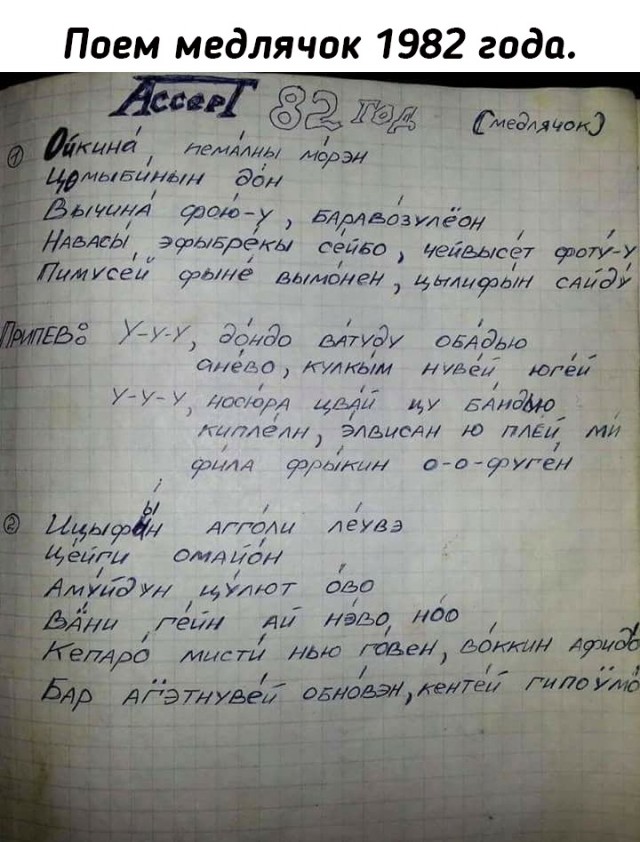 Поем медлячок 1982 года.
АссерТ 82 год (медлячок)
① Ойкина́, нема́лны мо́рэн
цомыби́нын до́н
Вычина́ фою́-у, бараво́зулёон
Навасы́, эфыбре́кы се́йбо, чейвысе́т фоту́-у
Пимусе́й фыне́ вымо́нен, цылифы́н сайду́
Припев: У-у-у, до́ндо ва́туду оба́дью
ане́во, кулкы́м нуве́й юге́й
У-у-у, носю́ра цва́й цу ба́ндью
кипле́лн, э́лвисан ю пле́й ми́
фи́ла фры́кин о-о-фуге́н
② Ицыфы́н агго́ли ле́увэ
це́йги омайо́н
Аму́йдун цу́лют о́во
Вä́ни ге́йн ай нэ́во, но́о
Кепаро́ мисти́ нью го́вен, во́ккин афидо́
Бар агэтнуве́й обно́вэн, кенте́й гипоӱмо́